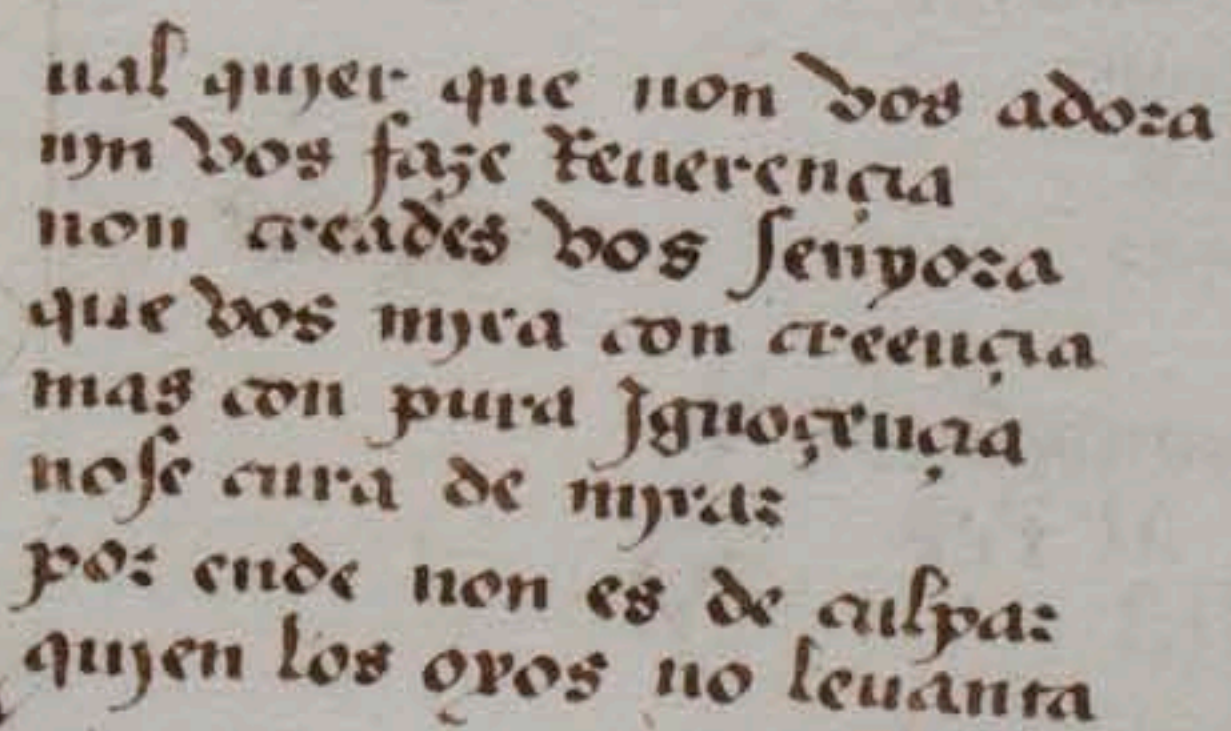 ual qujer que non vos adora
njn vos faze Reuerençia
non creades vos senyora
que vos mjra con creençia
mas con pura Jgnoçençia
no se cura de mjrar
por ende non es de culpar
qujen los oyos no leuanta